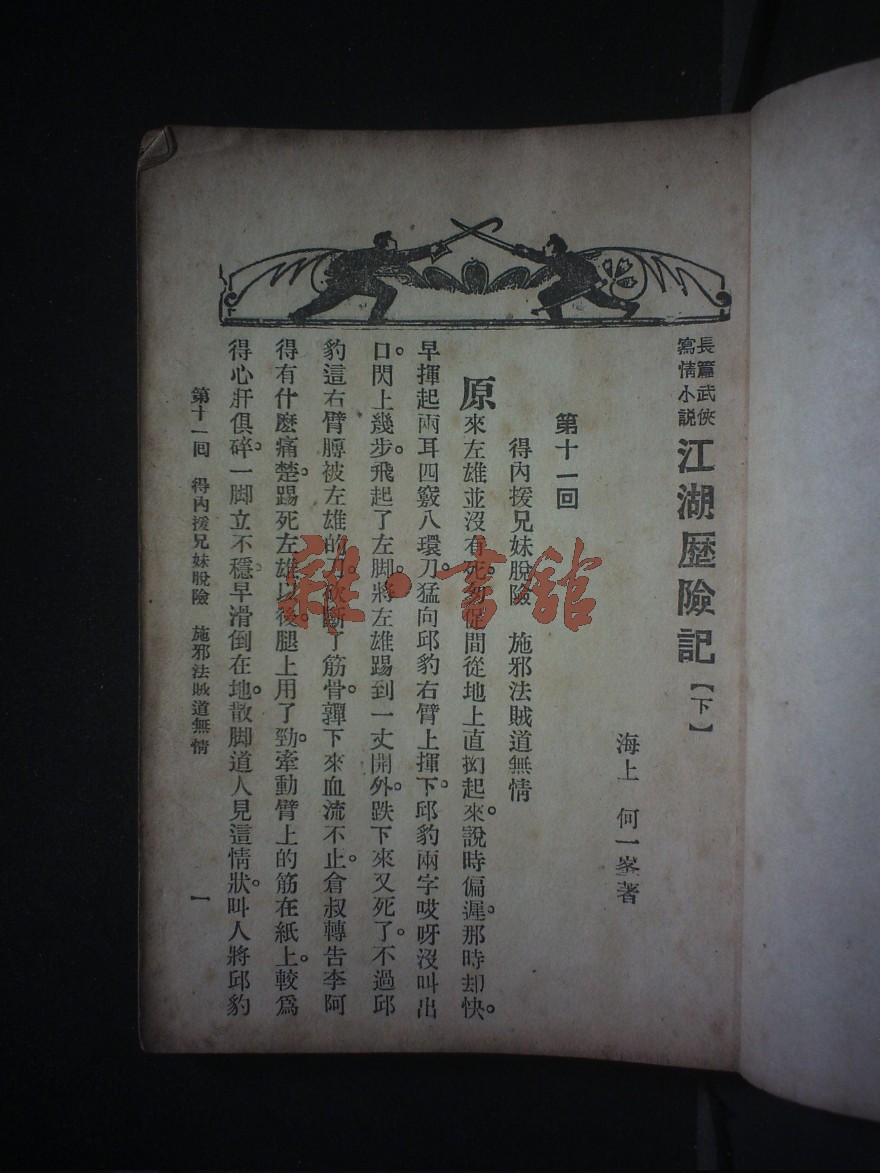 長篇武俠
寫情小說
江湖歷險記【下】
海上 何一峯著
第十一回
得內援兄妹脫險 施邪法賊道無情
原來左雄並沒有死。匆促間從地上直拗起來。說時偏遲。那時却快。
早揮起兩耳四竅八環刀。猛向邱豹右臂上揮下。邱豹兩字哎呀沒叫出
口。閃上幾步。飛起了左脚。將左雄踢到一丈開外。跌下來又死了。不過邱
豹這右臂膊被左雄的刀。砍斷了筋骨。嚲下來血流不止。倉叔轉告李阿
得有什麼痛楚。踢死左雄以後。腿上用了勁。牽動臂上的筋在紙上。較為
得心肝俱碎。一脚立不穩。早滑倒在地。散脚道人見這情狀。叫人將邱豹
第十一回 得內援兄妹脫險 施邪法賊道無情
一
雜·書館